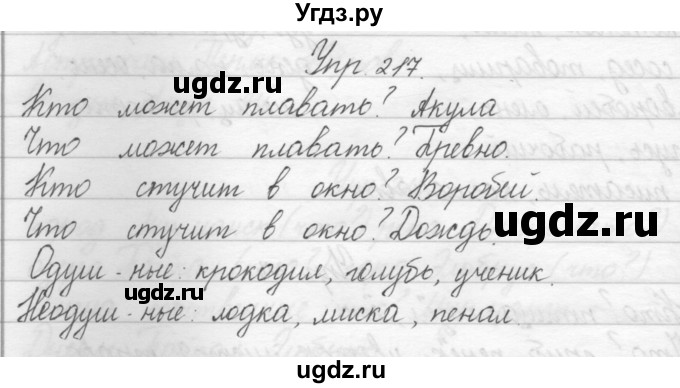 Угдз.ру
Упр. 217.
Кто может плавать? Акула
Что может плавать? Бревно.
Кто стучит в окно? Воробей.
Что стучит в окно? Дождь.
Одуш-ные: крокодил, голубь, ученик.
Неодуш-ные: лодка, миска, пенал.
ugdz.ru
ugdz.ru
ugdz.ru
ugdz.ru
ugdz.ru